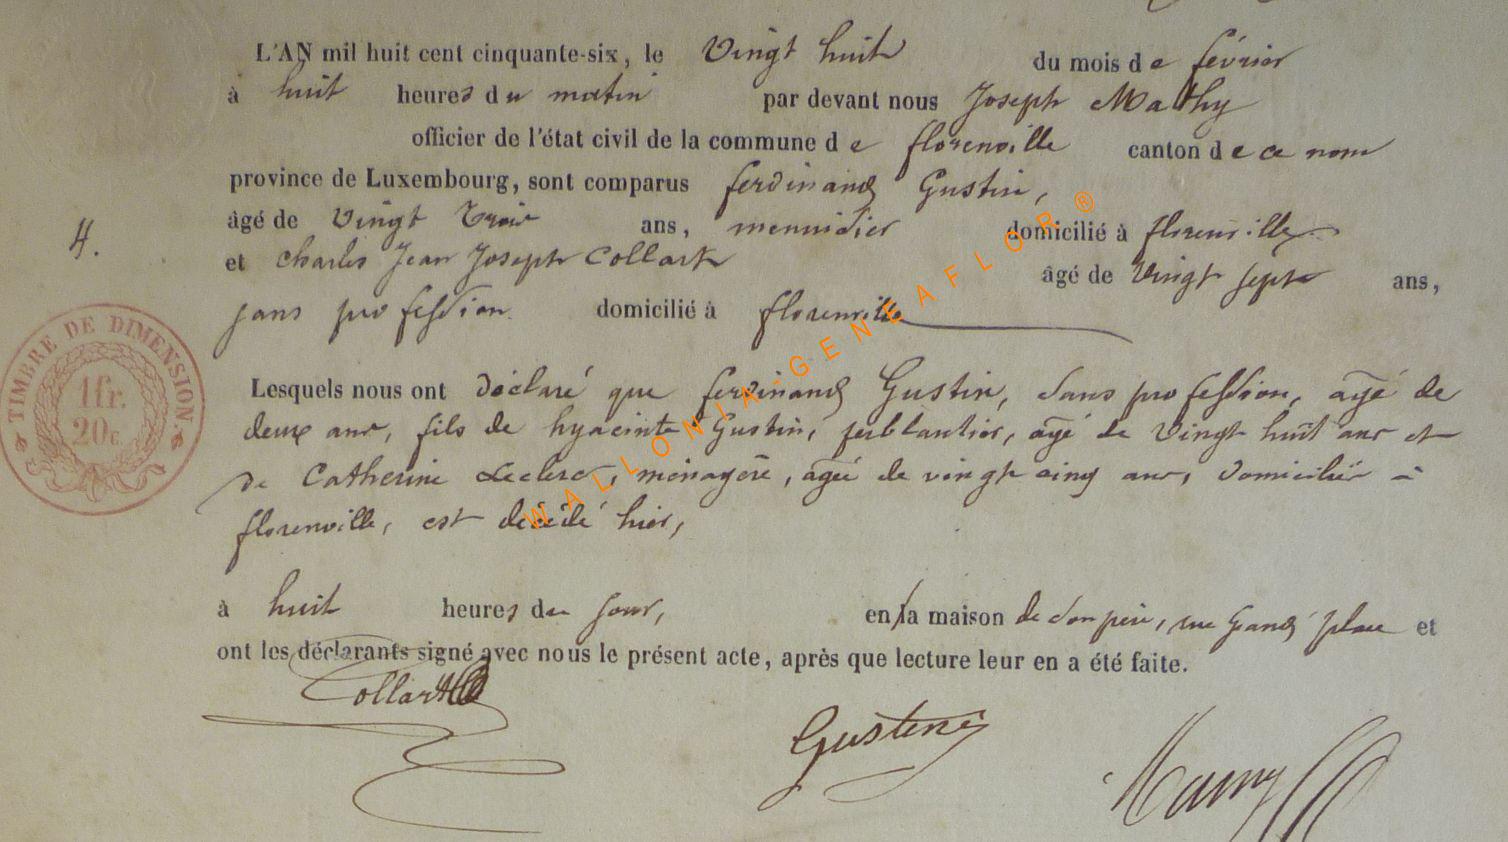 L'AN mil huit cent cinquante-six, le Vingt huit du mois de février
à huit heures du matin par devant nous Joseph Mathy
officier de l'état civil de la commune de florenville canton de ce nom
province de Luxembourg, sont comparus ferdinand Gustin,
âgé de Vingt Trois ans, menuisier domicilié à florenville
et Charles Jean Joseph Collart âgé de Vingt sept ans,
sans profession domicilié à florenville
4.
TIMBRE DE DIMENSION.
1 fr.
20 c.
Lesquels nous ont déclaré que ferdinand Gustin, sans profession, agé de
deux ans, fils de hyacinte Gustin, ferblantier, agé de Vingt huit ans et
de Catherine Leclerc, ménagère, agée de vingt cinq ans, domiciliés à
florenville, est décédé hier,
à huit heures du soir, en la maison de son père, rue Grand place et
ont les déclarants signé avec nous le présent acte, après que lecture leur en a été faite.
Collart
Gustin
WALLONIA-GENEAFLOR®